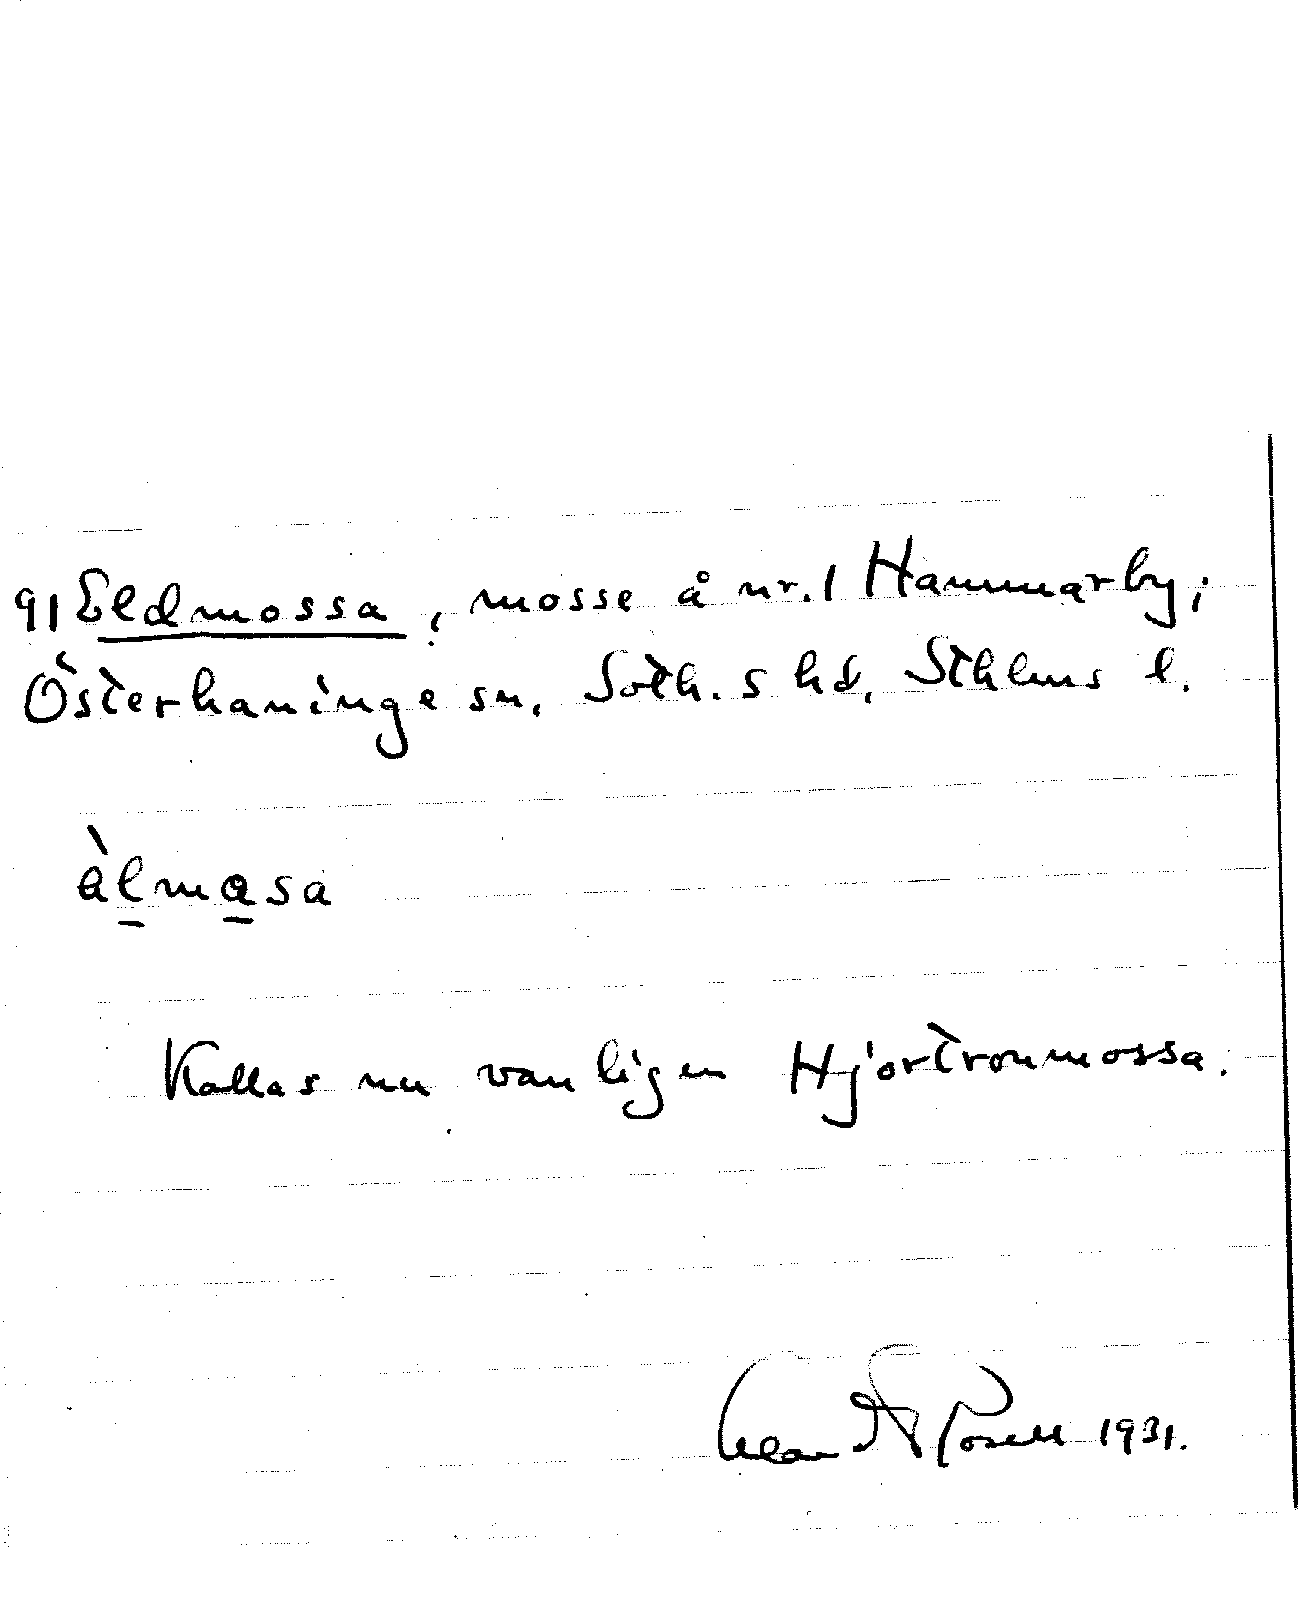 91 Eldmossa, mosse å nr. 1 Hammarby;
Österhaninge sn. Soth. s hd. Sthlms l.
àlmɑsa
Kallas nu vanligen Hjortronmossa.
1931.